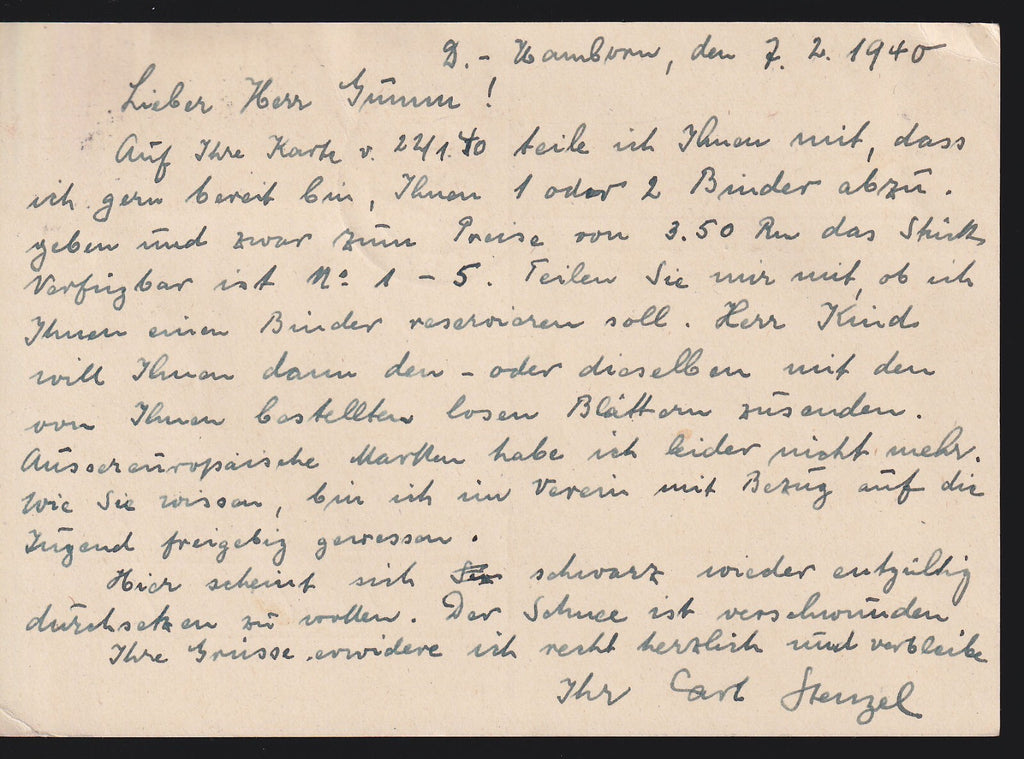 D. - Hamborn, den 7. 2. 1940
Lieber Herr Gumm!
Auf Ihre Karte v. 22/1.40 teile ich Ihnen mit, dass
ich gern bereit bin, Ihnen 1 oder 2 Binder abzu-
geben und zwar zum Preise von 3.50 Rm das Stück
Verfügbar ist No 1 - 5. Teilen Sie mir mit, ob ich
Ihnen einen Binder reservieren soll. Herr Kind
will Ihnen dann den - oder dieselben mit den
von Ihnen bestellten losen Blättern zusenden.
Aussereuropäische Marken habe ich leider nicht mehr.
Wie Sie wissen, bin ich im Verein mit Bezug auf die
Jugend freigebig gewesen.
Hier scheint sich schwarz wieder entgültig
durchsetzen zu wollen. Der Schnee ist verschwunden
Ihre Grüsse erwidere ich recht herzlich und verbleibe
Ihr Carl Stenzel